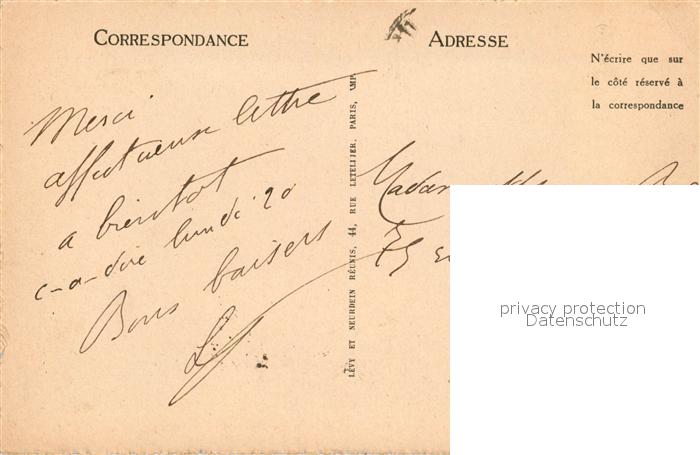 CORRESPONDANCE
ADRESSE
N'écrire que sur
le côté réservé à
la correspondance
Merci
affectueuse lettre
a bientot
c-a-dire lundi 20
Bons baisers
LÉVY ET NEURDEIN RÉUNIS, 44, RUE LETELLIER, PARIS, IMP.
Madame
75
privacy protection
Datenschutz